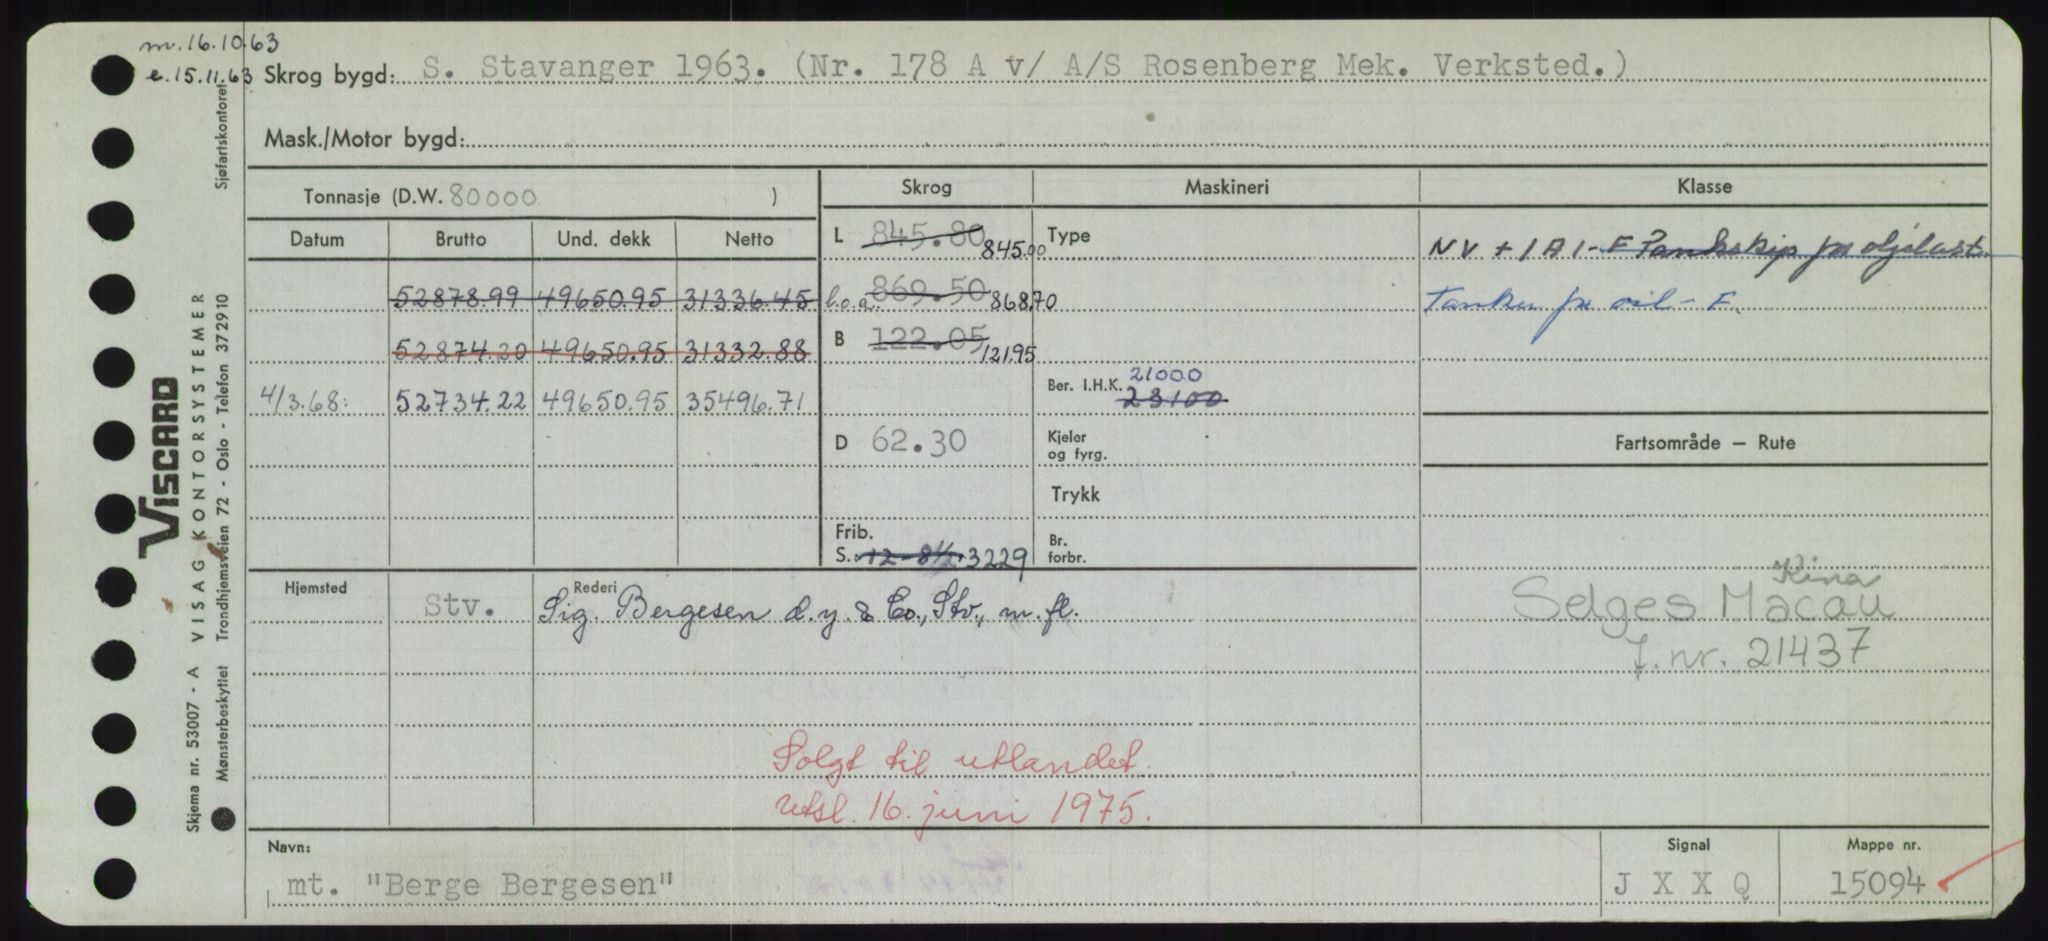 m. 16.10.63
e. 15.11.63
Skrog bygd: S. Stavanger 1963. (Nr. 178 A v/ A/S Rosenberg Mek. Verksted.)
Mask./Motor bygd:
Tonnasje (D.W. 80000 )
Skrog Maskineri Klasse
Datum Brutto Und. dekk Netto
L 845.80 845.00
Type
NV + 1A1 - F Tankskip for oljelast.
52878.99 49650.95 31336.45
l.o.a. 869.50 868.70
Tanker for oil - F.
52874.20 49650.95 31332.88
B 122.05 121.95
4/3.68: 52734.22 49650.95 35496.71
Ber. I.H.K. 21000
23100
D 62.30
Kjeler
og fyrg.
Fartsområde — Rute
Trykk
Frib.
S.: 12-8½. 3229
Br.
forbr.
Hjemsted Stv.
Rederi
Sig. Bergesen d.y. & Co., Stv., m. fl.
Kina
Selges Macau
J. nr. 21437
Solgt til utlandet.
Utsl. 16. juni 1975.
Navn:
mt. "Berge Bergesen"
Signal
J X X Q
Mappe nr.
15094
VISCARD
Skjema nr. 53007 - A VISAG KONTORSYSTEMER
Mønsterbeskyttet Trondhjemsveien 72 - Oslo - Telefon 372910
Sjøfartskontoret